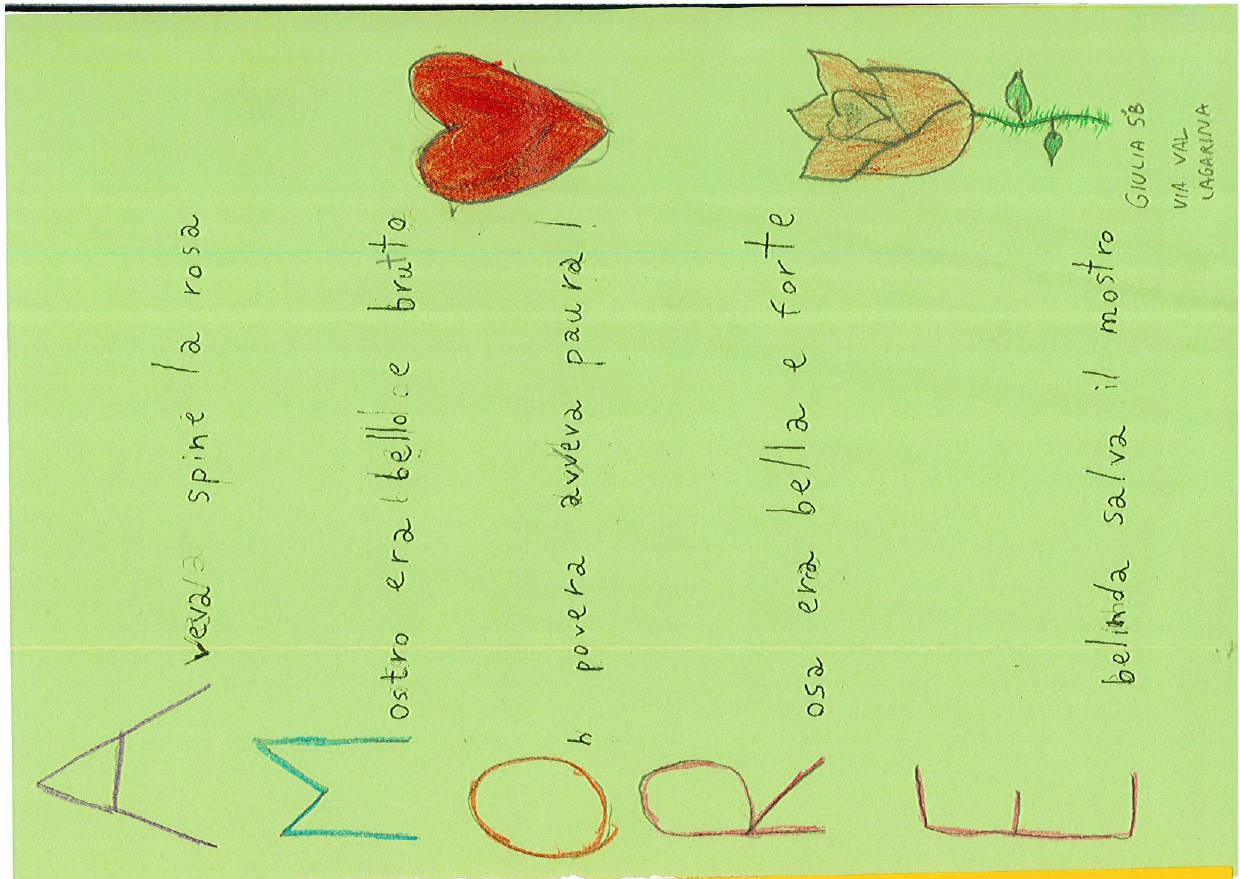 Aveva spine la rosa
Mostro era bello e brutto
Oh povera avveva paura!
Rosa era bella e forte
E belinda salva il mostro
GIULIA 5B
VIA VAL
LAGARINA